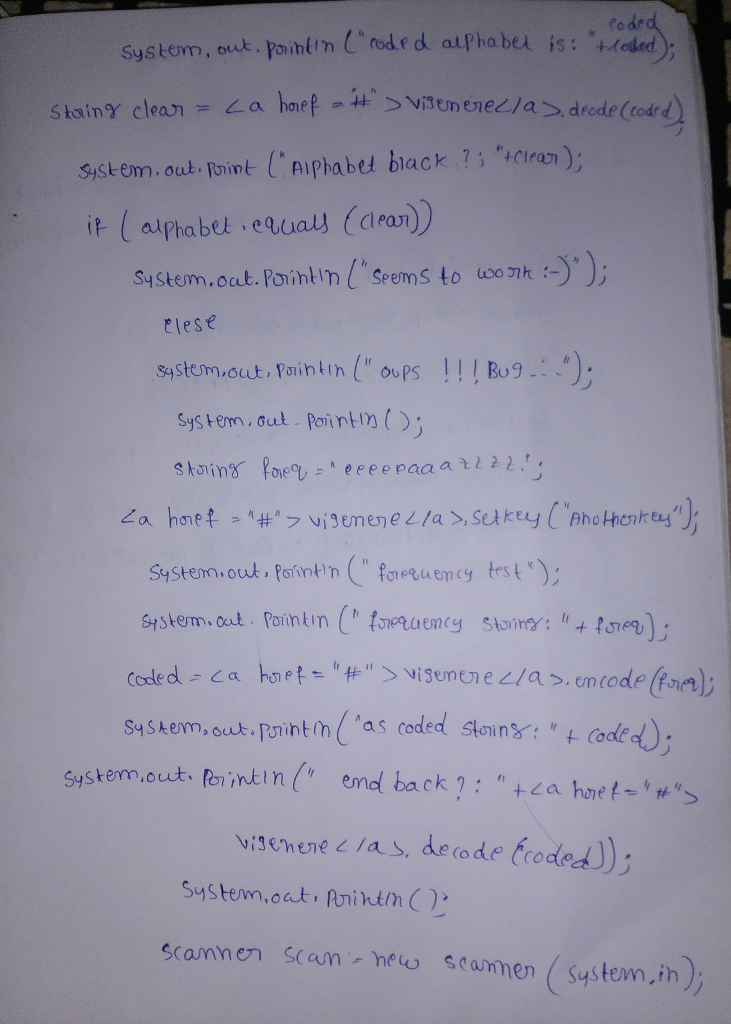 coded
System.out.println ("coded alphabet is: "+coded);
String clear = <a href = "#" > vigenere</a>.decode(coded);
System.out.print ("Alphabet back ?; "+clear);
if (alphabet.equals (clear))
System.out.println ("Seems to work :-)");
elese
System.out.println ("oups !!! Bug ...");
System.out.println();
String freq = "eeeeeaaazzzz";
<a href = "#" > vigenere</a>.setkey ("Anotherkey");
System.out.println ("frequency test");
System.out.println ("frequency string: "+ freq);
coded = <a href = "#" > vigenere</a>.encode (freq);
System.out.println ("as coded string: " + coded);
System.out.println (" end back ? : " + <a href = "#">
vigenere</a>.decode (coded));
System.out.println ();
scanner scan = new scanner (system.in);